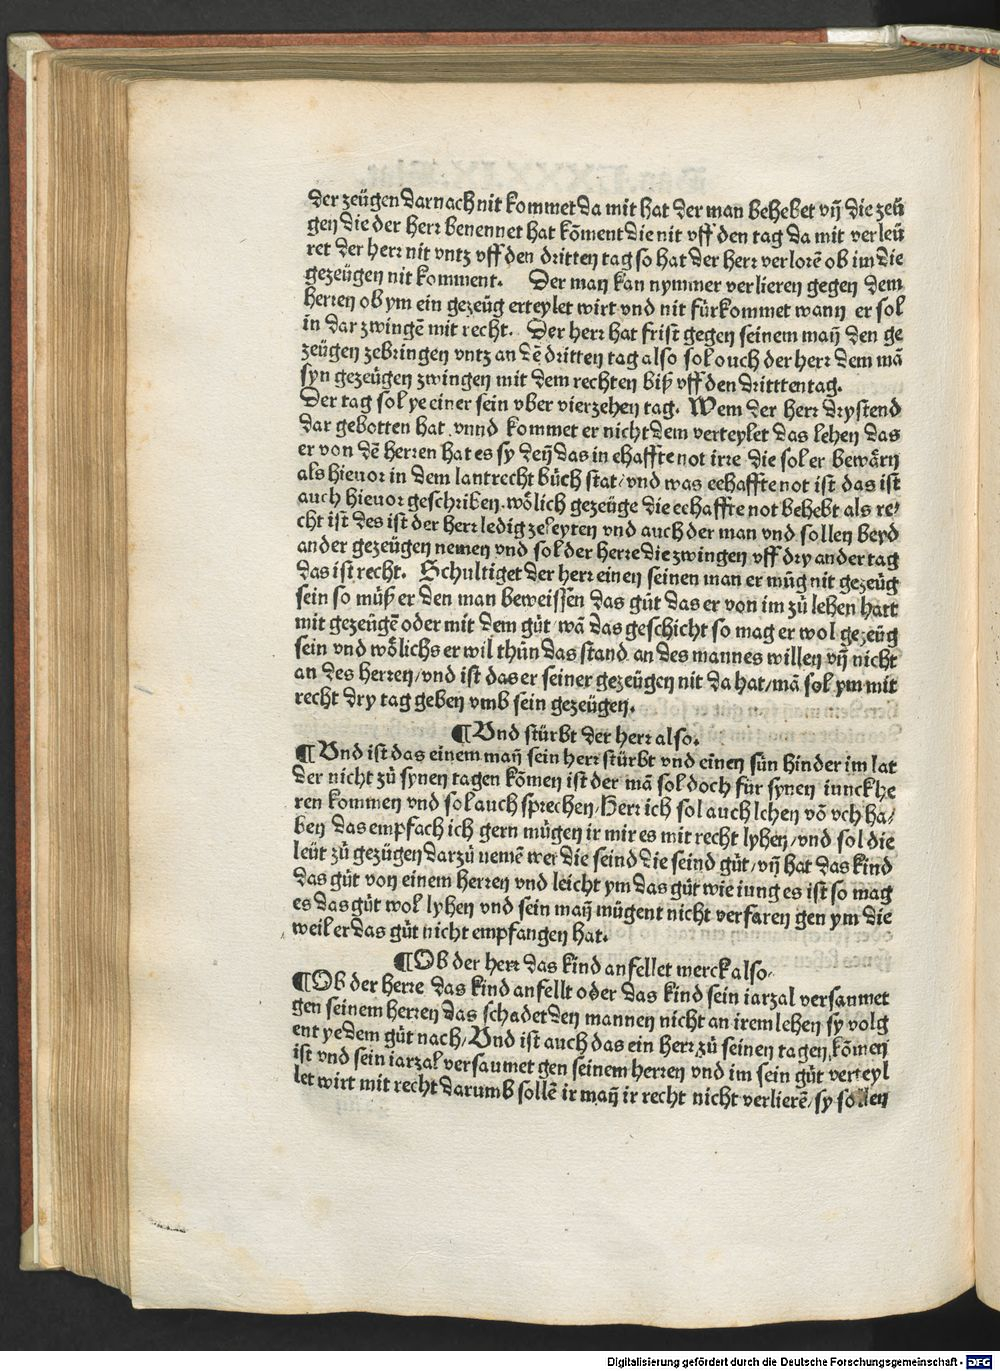 der zeügen darnach nit kommet da mit hat der man behebet vñ die zeü
gen die der herr benennet hat kõment die nit vff den tag da mit verleü
ret der herr nit vntz vff den dritten tag so hat der herr verlorẽ ob im die
gezeügen nit komment. Der man kan nymmer verlieren gegen dem
herren ob ym ein gezeüg erteylet wirt vnd nit fürkommet wann er sol
in dar zwingẽ mit recht. Der herr hat frist gegen seinem mañ den ge
zeügen zebringen vntz an dẽ dritten tag also sol ouch der herr dem mã
syn gezeügen zwingen mit dem rechten biß vff den dritttentag.
Der tag sol ye einer sein vber vierzehen tag. Wem der herr drystend
dar gebotten hat vnnd kommet er nicht dem verteylet das lehen das
er von dẽ herren hat es sy deñ das in ehaffte not irre die sol er bewårn
als hieuor in dem lantrecht bůch stat/ vnd was eehaffte not ist das ist
auch hieuor geschriben. wôlich gezeüge die eehaffte not behebt als re/
cht ist des ist der herr ledig zeleyten vnd auch der man vnd sollen beyd
ander gezeügen nemen vnd sol der herre die zwingen vff dry ander tag
das ist recht. Schultiget der herr einen seinen man er můg nit gezeüg
sein so můß er den man beweissen das gůt das er von im zů lehen hatt
mit gezeügẽ oder mit dem gůt/ wã das geschicht so mag er wol gezeüg
sein vnd wôlichs er wil thůn das stand an des mannes willen vñ nicht
an des herren/ vnd ist das er seiner gezeügen nit da hat/ mã sol ym mit
recht dry tag geben vmb sein gezeügen.
¶ Vnd stürbt der herr also.
¶ Vnd ist das einem mañ sein herr stürbt vnd einen sün hinder im lat
der nicht zů synen tagen kõmen ist der mã sol doch für synen iunckhe
ren kommen vnd sol auch sprechen/ Herr ich sol auch lehen võ vch ha/
ben das empfach ich gern mügen ir mir es mit recht lyhen/ vnd sol die
leüt zů gezügen darzů nemẽ wer die seind die seind gůt/ vñ hat das kind
das gůt von einem herren vnd leicht ym das gůt wie iung es ist so mag
es das gůt wol lyhen vnd sein mañ mügent nicht verfaren gen ym die
weil er das gůt nicht empfangen hat.
¶ Ob der herr das kind anfellet merck also.
¶ Ob der herre das kind anfellt oder das kind sein iarzal versaumet
gen seinem herren das schadet den mannen nicht an irem lehen sy volg
ent yedem gůt nach/ Vnd ist auch das ein herr zů seinen tagen kõmen
ist vnd sein iarzal versaumet gen seinem herren vnd im sein gůt verteyl
let wirt mit recht darumb sollẽ ir mañ ir recht nicht verlierẽ/ sy sollen
Digitalisierung gefördert durch die Deutsche Forschungsgemeinschaft - DFG